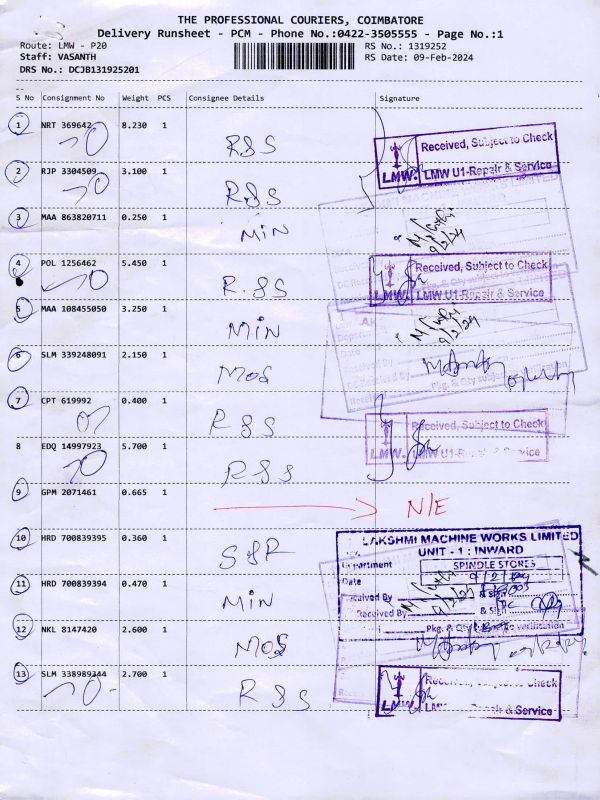 THE PROFESSIONAL COURIERS, COIMBATORE
Delivery Runsheet - PCM - Phone No.:0422-3505555 - Page No.:1
Route: LMW - P20
RS No.: 1319252
Staff: VASANTH
RS Date: 09-Feb-2024
DRS No.: DCJB131925201
S No Consignment No Weight PCS Consignee Details Signature
1 NRT 369642 8.230 1 R&S
Received, Subject to Check
LMW. LMW U1-Repair & Service
2 RJP 3304509 3.100 1 R&S
3 MAA 863820711 0.250 1 MIN
9/2/24
4 POL 1256462 5.450 1 R&S
Received, Subject to Check
LMW. LMW U1-Repair & Service
5 MAA 108455050 3.250 1 MIN
9/2/24
6 SLM 339248091 2.150 1 MOS
7 CPT 619992 0.400 1 R&S
Received, Subject to Check
LMW. LMW U1-Repair & Service
8 EDQ 14997923 5.700 1 R&S
9 GPM 2071461 0.665 1 N/E
10 HRD 700839395 0.360 1 S&R
LAKSHMI MACHINE WORKS LIMITED
UNIT - 1 : INWARD
Department SPINDLE STORES
Date 9/2/24
11 HRD 700839394 0.470 1 MIN
Received By & Sign
Received By & Sign
12 NKL 8147420 2.600 1 MOS
Pkg. & Qty Subject to verification
13 SLM 338989344 2.700 1 R&S
Received, Subject to Check
LMW. LMW U1-Repair & Service